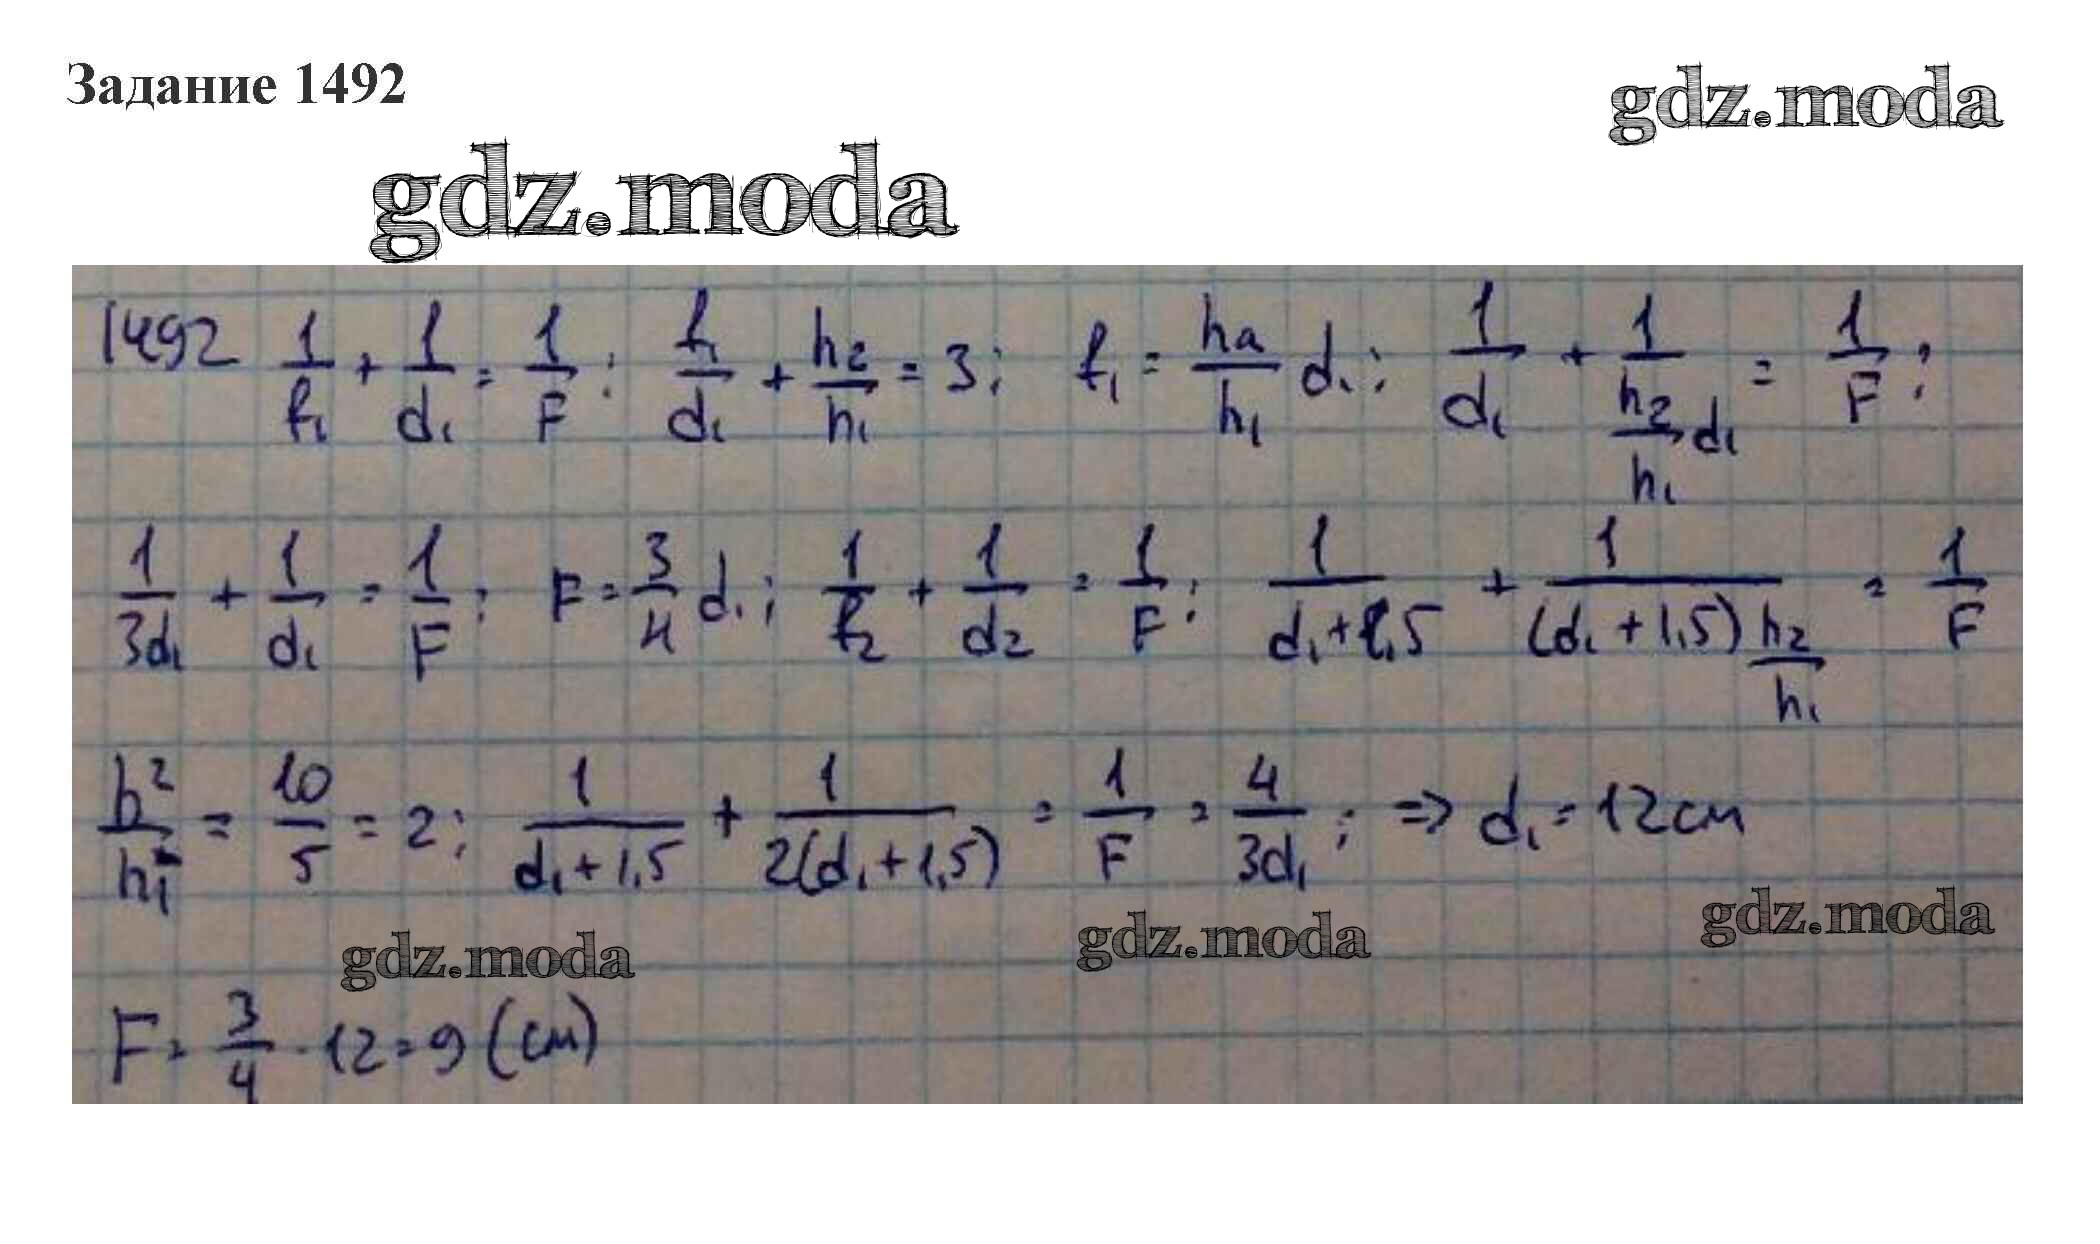 Задание 1492
gdz.moda
gdz.moda
1492 1/f₁ + 1/d₁ = 1/F; f₁/d₁ + h₂/h₁ = 3; f₁ = h₂/h₁ d₁; 1/d₁ + 1/(h₂/h₁ d₁) = 1/F;
1/3d₁ + 1/d₁ = 1/F; F = 3/4 d₁; 1/f₂ + 1/d₂ = 1/F; 1/(d₁+1,5) + 1/((d₁+1,5) h₂/h₁) = 1/F
h²/h₁ = 10/5 = 2; 1/(d₁+1,5) + 1/(2(d₁+1,5)) = 1/F = 4/3d₁; => d₁ = 12 см
gdz.moda gdz.moda gdz.moda
F = 3/4 · 12 = 9 (см)